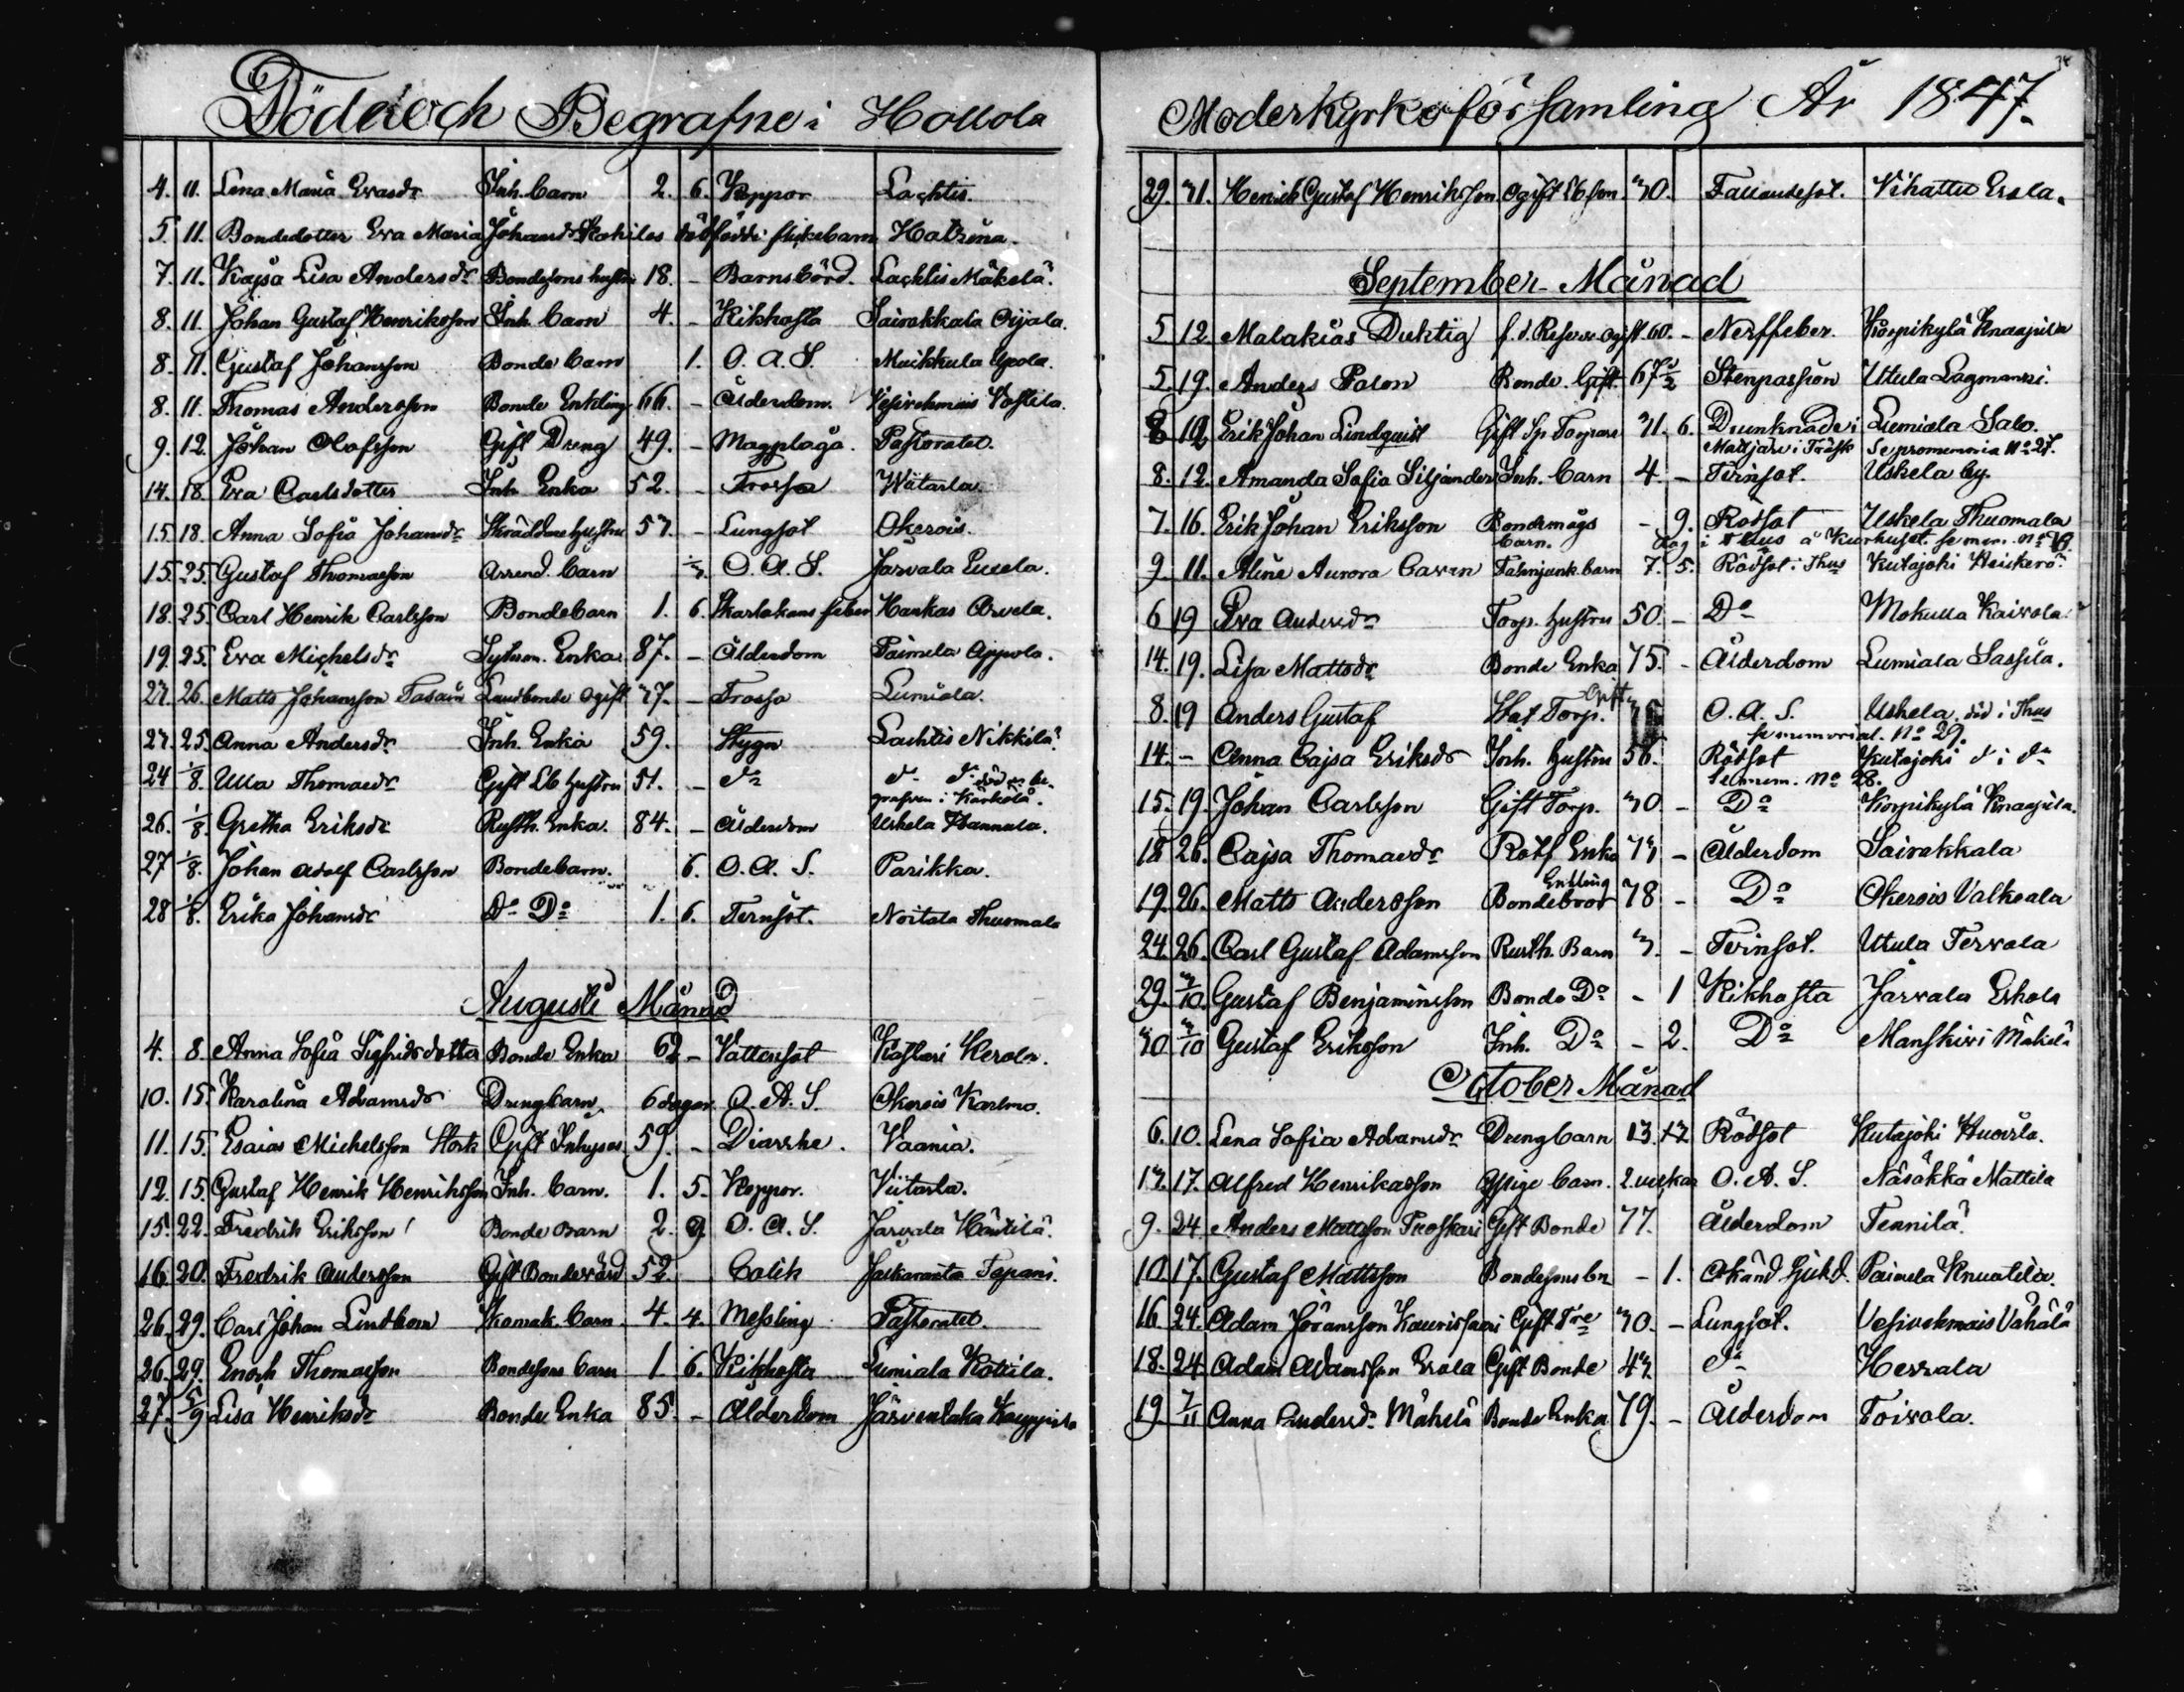 Döde och Begrafne i Hollola
4. 11. Lena Maria Evasdr Inh. barn 2. 6. Koppor Lachtis.
5. 11. Bondedotter Eva Maria Johansdr flickebarn Hatsina.
7. 11. Kajsa Lisa Andersdr Bondesons hustru 18. - Barnsbörd. Lachtis Mäkelä.
8. 11. Johan Gustaf Henriksson Inh. barn 4. - Kikhosta Sairakkala Oijala.
8. 11. Gustaf Johansson Bonde barn 1. O. A. S. Muikkula
8. 11. Thomas Andersson Bonde Enkling 66. - Ålderdom. Vesivehmais
9. 12. Johan Olofsson Gift Dreng 49. - Magplåga. Pastoratet.
14. 18. Eva Carlsdotter Inh. Enka 52. - Frossa Wiitaila.
15. 18. Anna Sofia Johansdr Skräddare hustru 53. - Lungsot Okerois.
15. 25. Gustaf Thomasson Arrend. barn O. A. S. Jarvala Eusela.
18. 25. Carl Henrik Carlsson Bondebarn 1. 6. Skarlakans feber Hankas Arvela.
19. 25. Eva Michelsdr Sytnm. Enka 87. - Ålderdom Paimela Appola.
23. 26. Matts Johansson Landbonde ogift 37. - Frossa Lumiala.
23. 25. Anna Andersdr Inh. Enka 59. Stygn Lachtis Nikkilä.
24 1/8. Ulla Thomasdr Gift Lb hustru 51. - do do do död o. be-
grafven i Kärkölä.
26. 1/8. Gretha Eriksdr Rusth. Enka. 84. - Ålderdom Uskela Hannula.
27 1/8. Johan Adolf Carlsson Bondebarn. 6. O. A. S. Parikka.
28 1/8. Erika Johansdr Do Do 1. 6. Ternsot. Noitala Thuomala
Augusti Månad
4. 8. Anna Sofia Sigfridsdotter Bonde Enka 62 - Vattensot Kastari Kerola.
10. 15. Karolina Adamsdr Drengbarn 6 dagar. O. A. S. Okerois Karlmo.
11. 15. Esaias Michelsson Stork Gift Inhyses 59. - Diarrhe. Vaania.
12. 15. Gustaf Henrik Henriksson Inh. barn. 1. 5. Koppor. Viitaila.
15. 22. Fredrik Eriksson Bonde barn 2. 9 O. A. S. Jarvala Häntilä.
16. 20. Fredrik Andersson Gift Bondevärd 52 Colik Tapani.
26. 29. Carl Johan Lindbom Skomak. barn 4. 4. Messling Pastoratet.
26. 29. Enoch Thomasson Bondesons barn 1. 6. Kikhosta Lumiala Kottila.
27. 5/9 Lisa Henriksdr Bonde Enka 85. - Ålderdom Järventaka
Moderkyrkoförsamling År 1847.
29. 31. Henrik Gustaf Henriksson Ogift Lb son 30. Fallandesot. Vihattu Erola.
September Månad
5 12. Malakias Duktig f. d. Reserv. Ogift 60. - Nerffeber. Korpikylä Knaapila
5. 19. Anders Palon Bonde. Gift. 67 1/2 Stenpassion Utula Lagmanni.
8 12 Erik Johan Lindquist Gift Sp Torpare 31. 6. Drunknade i Lumiala Salo.
Matjärvi Träsk Se promemoria No 27.
8. 12. Amanda Sofia Siljander Inh. barn 4 - Ternsot. Uskela by.
7. 16. Erik Johan Eriksson Bondemågs - 9. Rödsot Uskela Thuomala
barn. dog i Thus å Kurhuset. se mem. No
9. 11. Aline Aurora Caven Fahnjunk. barn 7. 5. Rödsot i Thus Kutajoki Heickerö
6 19 Eva Andersdr Torp. hustru 50. - Do Mokulla Kaivola.
14. 19. Lisa Mattsdr Bonde Enka 75. - Ålderdom Lumiala Sassila.
8. 19 Anders Gustaf Stat Torp. Gift O. A. S. Uskela. död i Thus
se memorial. No 29.
14. - Anna Cajsa Eriksdr Inh. hustru 56. Rödsot Kutajoki d i do
se mem. No 28.
15. 19. Johan Carlsson Gift Torp. 30 - Do Korpikylä Knaapila.
18 26. Cajsa Thomasdr Rotf Enka 73 - Ålderdom Sairakkala
19. 26. Matts Andersson Bondebror Enkling 78 - Do Okerois Valkeala
24. 26. Carl Gustaf Adamsson Rusth. Barn 3. - Ternsot. Utula Tervala
29. 3/10. Gustaf Benjaminsson Bonde Do - 1 Kikhosta Jarvala Eskola
30 3/10 Gustaf Eriksson Inh. Do - 2. Do Manskivi Mäkelä
October Månad
6. 10. Lena Sofia Adamsdr Drengbarn 13. Rödsot Kutajoki
13. 17. Alfred Henriksson Gysige barn. 2 veckor O. A. S. Näsäkkä Mattila
9. 24. Anders Mattsson Gift Bonde 77. Ålderdom Tennilä.
10. 17. Gustaf Mattsson Bondesons bn - 1. Okänd sjukd. Paimela Knuutila.
16. 24. Adam Göransson Gift 30. - Lungsot. Vesivehmais Vähälä
18. 24 Adam Adamsson Erola Gift Bonde 43. do Herrala
19. 7/11 Anna Andersdr Mäkelä Bonde Enka 79. - Ålderdom Toivola.